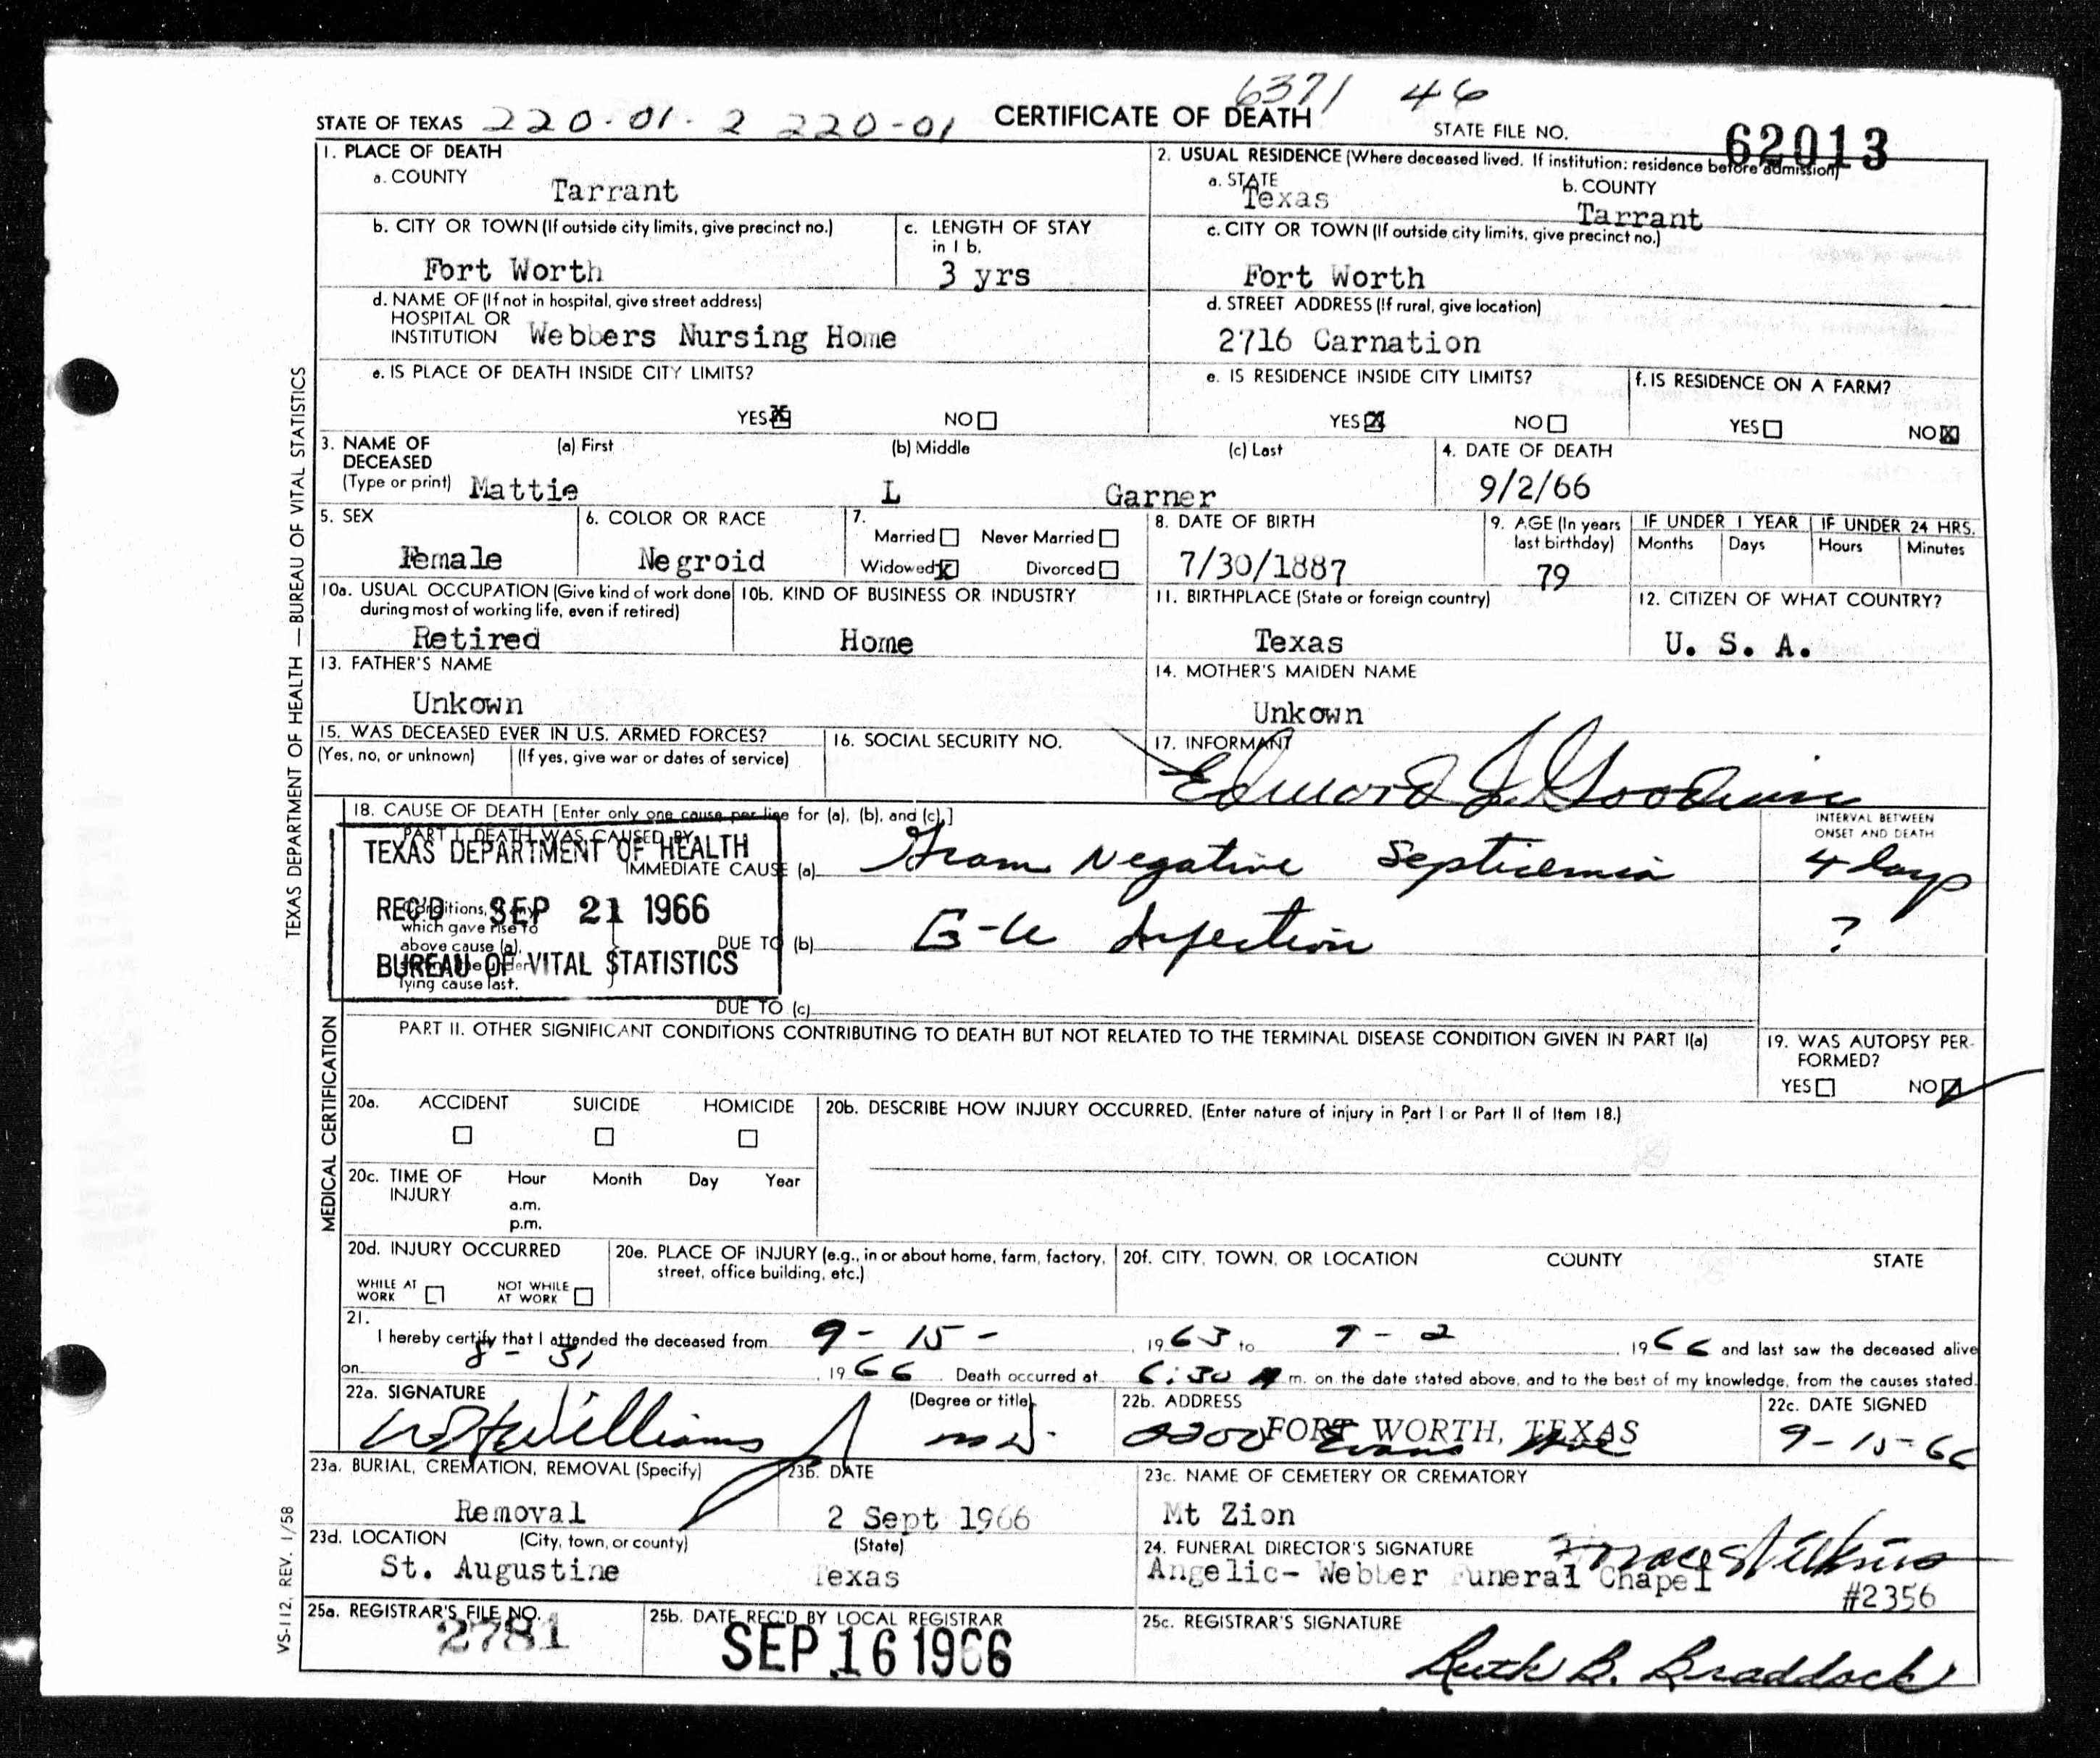 6371 46
STATE OF TEXAS 220-01-2 220-01 CERTIFICATE OF DEATH STATE FILE NO. 62013
1. PLACE OF DEATH
a. COUNTY Tarrant
2. USUAL RESIDENCE (Where deceased lived. If institution: residence before admission)
a. STATE Texas b. COUNTY Tarrant
b. CITY OR TOWN (If outside city limits, give precinct no.) Fort Worth
c. LENGTH OF STAY in 1 b. 3 yrs
c. CITY OR TOWN (If outside city limits, give precinct no.) Fort Worth
d. NAME OF (If not in hospital, give street address)
HOSPITAL OR
INSTITUTION Webbers Nursing Home
d. STREET ADDRESS (If rural, give location)
2716 Carnation
e. IS PLACE OF DEATH INSIDE CITY LIMITS?
YES X NO
e. IS RESIDENCE INSIDE CITY LIMITS?
YES X NO
f. IS RESIDENCE ON A FARM?
YES NO X
3. NAME OF DECEASED (Type or print)
(a) First (b) Middle (c) Last
Mattie L Garner
4. DATE OF DEATH
9/2/66
5. SEX
Female
6. COLOR OR RACE
Negroid
7.
Married Never Married
Widowed X Divorced
8. DATE OF BIRTH
7/30/1887
9. AGE (In years last birthday)
79
IF UNDER 1 YEAR IF UNDER 24 HRS.
Months Days Hours Minutes
10a. USUAL OCCUPATION (Give kind of work done during most of working life, even if retired)
Retired
10b. KIND OF BUSINESS OR INDUSTRY
Home
11. BIRTHPLACE (State or foreign country)
Texas
12. CITIZEN OF WHAT COUNTRY?
U. S. A.
13. FATHER'S NAME
Unkown
14. MOTHER'S MAIDEN NAME
Unkown
15. WAS DECEASED EVER IN U.S. ARMED FORCES?
(Yes, no, or unknown) (If yes, give war or dates of service)
16. SOCIAL SECURITY NO.
17. INFORMANT
Edward J. Goodwin
18. CAUSE OF DEATH [Enter only one cause per line for (a), (b), and (c).]
INTERVAL BETWEEN
ONSET AND DEATH
PART I. DEATH WAS CAUSED BY
IMMEDIATE CAUSE (a) Gram Negative Septicemia 4 days
Conditions, if any, which gave rise to above cause (a), lying cause last.
DUE TO (b) G-U Infection ?
DUE TO (c)
TEXAS DEPARTMENT OF HEALTH
REC'D SEP 21 1966
BUREAU OF VITAL STATISTICS
PART II. OTHER SIGNIFICANT CONDITIONS CONTRIBUTING TO DEATH BUT NOT RELATED TO THE TERMINAL DISEASE CONDITION GIVEN IN PART I(a)
19. WAS AUTOPSY PERFORMED?
YES NO
20a. ACCIDENT SUICIDE HOMICIDE
20b. DESCRIBE HOW INJURY OCCURRED. (Enter nature of injury in Part I or Part II of Item 18.)
20c. TIME OF INJURY
Hour Month Day Year
a.m.
p.m.
20d. INJURY OCCURRED
WHILE AT WORK NOT WHILE AT WORK
20e. PLACE OF INJURY (e.g., in or about home, farm, factory, street, office building, etc.)
20f. CITY, TOWN, OR LOCATION COUNTY STATE
21.
I hereby certify that I attended the deceased from 9-15- , 1963 to 9-2 , 1966 and last saw the deceased alive
on 8-31 , 1966 . Death occurred at 6:30 m. on the date stated above, and to the best of my knowledge, from the causes stated.
22a. SIGNATURE (Degree or title)
Williams MD.
22b. ADDRESS
2200 Evans Ave FORT WORTH, TEXAS
22c. DATE SIGNED
9-15-66
23a. BURIAL, CREMATION, REMOVAL (Specify)
Removal
23b. DATE
2 Sept 1966
23c. NAME OF CEMETERY OR CREMATORY
Mt Zion
23d. LOCATION (City, town, or county) (State)
St. Augustine Texas
24. FUNERAL DIRECTOR'S SIGNATURE
Angelic- Webber Funeral Chapel
#2356
25a. REGISTRAR'S FILE NO.
2781
25b. DATE REC'D BY LOCAL REGISTRAR
SEP 16 1966
25c. REGISTRAR'S SIGNATURE
Ruth B. Braddock
TEXAS DEPARTMENT OF HEALTH — BUREAU OF VITAL STATISTICS
MEDICAL CERTIFICATION
VS-112, REV. 1/58